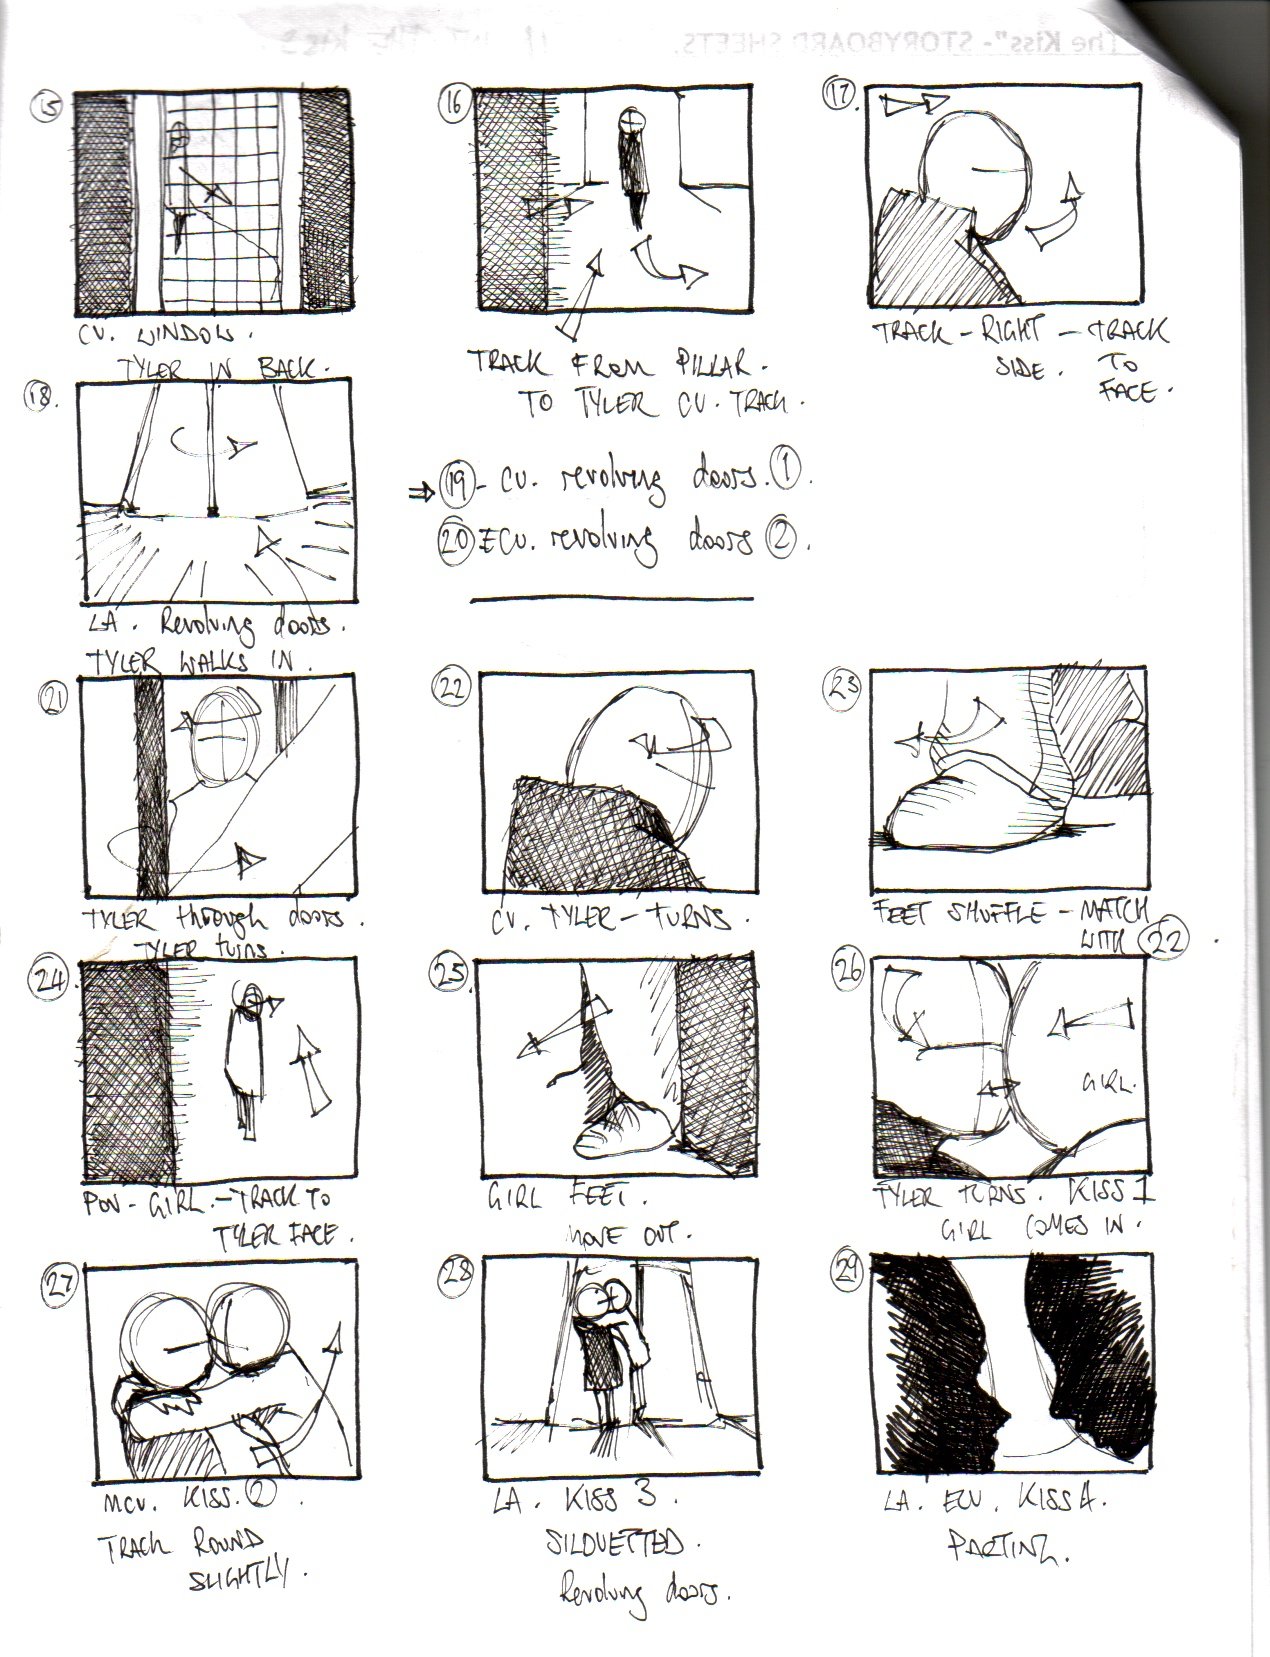 "The Kiss" - STORYBOARD SHEETS.
15
CU. WINDOW.
TYLER IN BACK.
16
TRACK FROM PILLAR.
TO TYLER CU. TRACK.
17
TRACK - RIGHT - TRACK
SIDE. TO
FACE.
18.
LA. Revolving doors.
TYLER WALKS IN.
⇒ 19 - CU. revolving doors. 1.
20 ECU. revolving doors 2.
21
TYLER through doors.
TYLER turns.
22
CU. TYLER - TURNS.
23
FEET SHUFFLE - MATCH
WITH 22.
24
POV - GIRL. - TRACK TO
TYLER FACE.
25
GIRL FEET.
MOVE OUT.
26
GIRL.
TYLER TURNS. KISS 1
GIRL COMES IN.
27
MCU. KISS. 2.
TRACK ROUND
SLIGHTLY.
28
LA. KISS 3.
SILOUETTED.
Revolving doors.
29
LA. ECU. KISS 4.
PARTING.